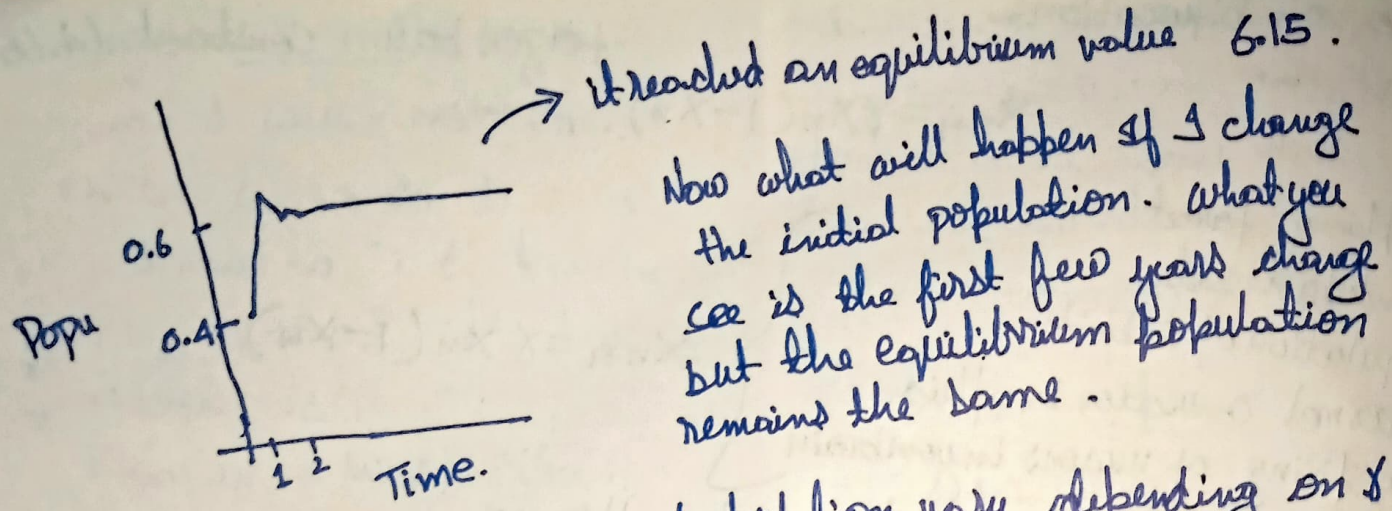 it reached an equilibrium value 6.15.
Now what will happen If I change
the initial population. what you
see is the first few years change
but the equilibrium population
remains the same.
depending on
0.6
0.4
Popu
1 2
Time.